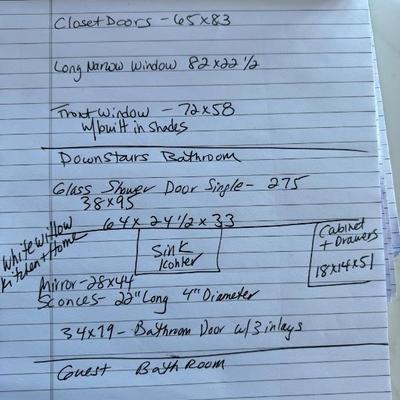 Closet Doors - 65x83
Long Narrow Window 82x22 1/2
Front Window - 72x58
w/built in shades
Downstairs Bathroom
Glass Shower Door Single - 275
38x95
64x24 1/2x33
White Willow
Kitchen + Home
Sink
Kohler
Cabinet
+ Drawers
18x14x51
Mirror - 28x44
Sconces - 22" Long 4" Diameter
34x79 - Bathroom Door w/3 inlays
Guest BathRoom